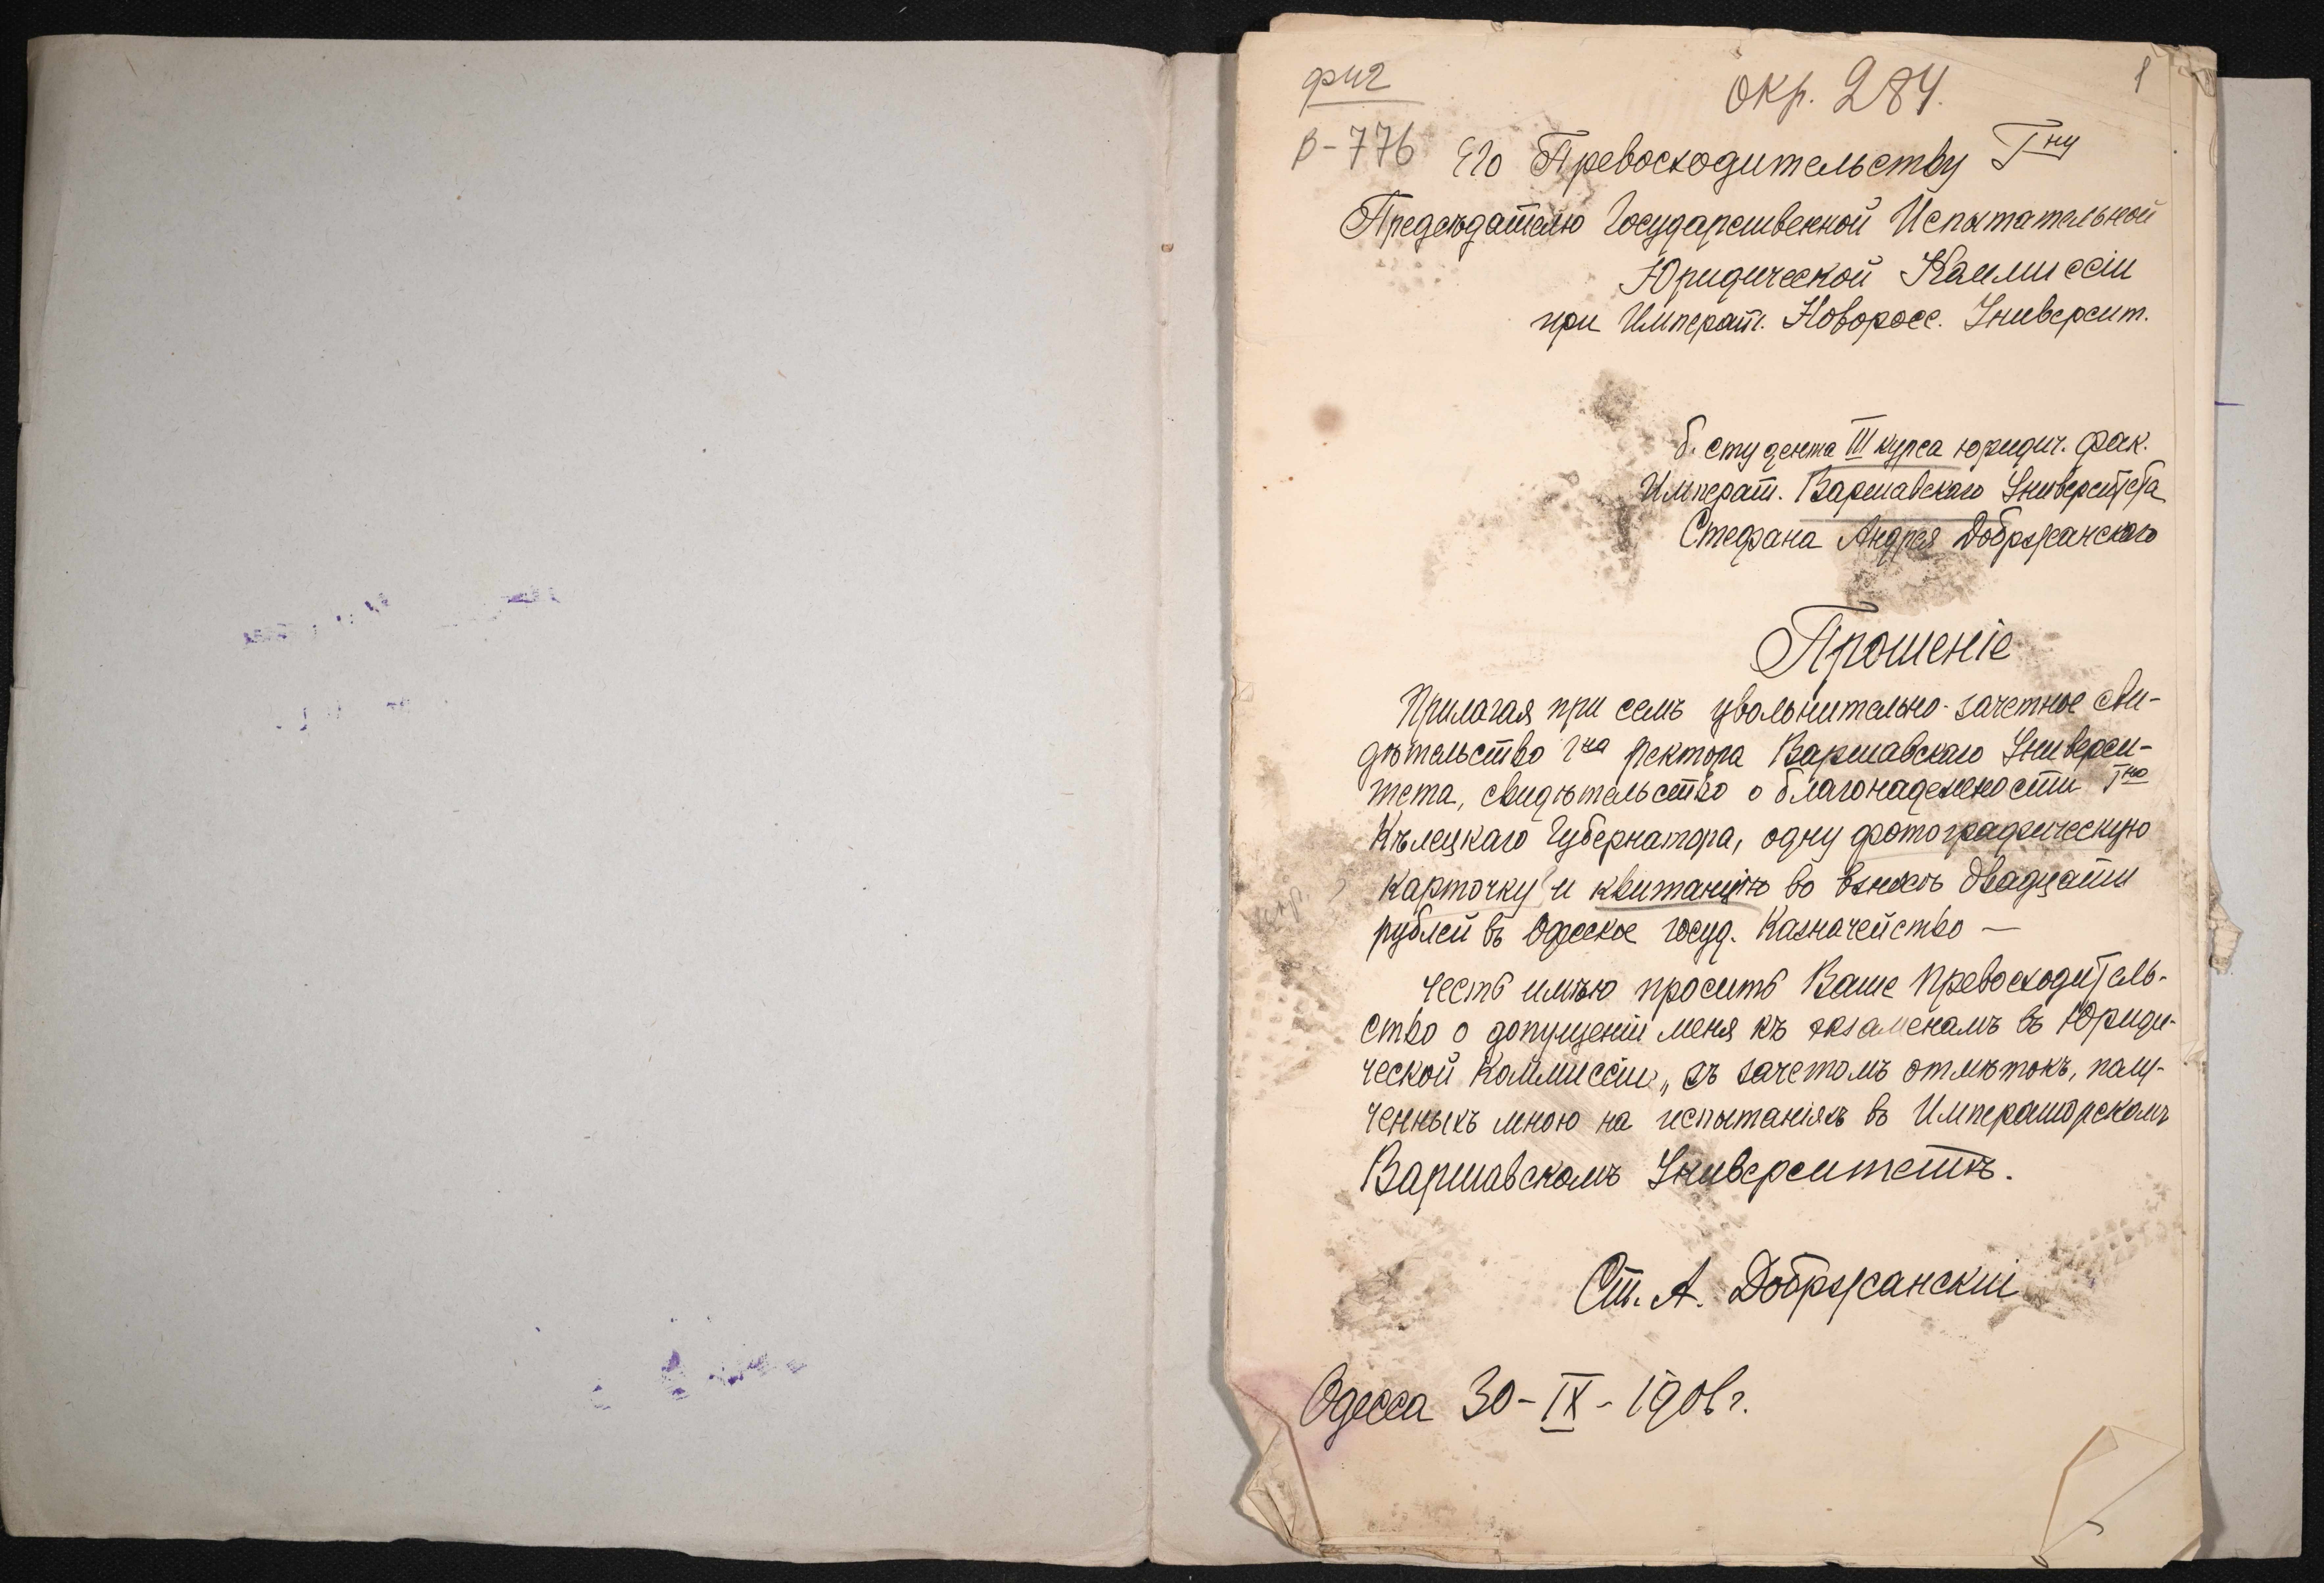 окр. 284.
1
В-776
Его Превосходительству Гну
Предсѣдателю Государственной Испытательной
Юридической Коммиссіи
при Императ. Новоросс. Университ.
б. студента III курса юридич. фак.
Императ. Варшавскаго Университета
Стефана Андрея Добржанскаго
Прошеніе
Прилагая при семъ увольнительно-зачетное сви-
дѣтельство Гна Ректора Варшавскаго Универси-
тета, свидѣтельство о благонадежности Гна
Кѣлецкаго Губернатора, одну фотографическую
карточку и квитанцію во взносѣ двадцати
рублей въ Одесское госуд. Казначейство —
честь имѣю просить Ваше Превосходитель-
ство о допущеніи меня къ экзаменамъ въ Юриди-
ческой Коммиссіи, съ зачетомъ отмѣтокъ, полу-
ченныхъ мною на испытаніяхъ въ Императорскомъ
Варшавскомъ Университетѣ.
Ст. А. Добржанскій
Одесса 30-IX-1906 г.